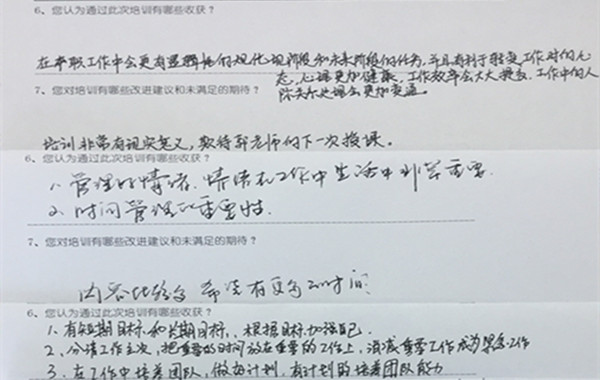 6、您认为通过此次培训有哪些收获？
在本职工作中会更有逻辑性的规化现阶段和未来阶段的任务，并且有利于转变工作时的心
态，心理更加健康，工作效率会大大提高，工作中的人
7、您对培训有哪些改进建议和未满足的期待？
际关系处理会更加变通。
培训非常有现实意义，期待郭老师的下一次授课。
6、您认为通过此次培训有哪些收获？
1、管理好情绪，情绪在工作中生活中非常重要。
2、时间管理的重要性。
7、您对培训有哪些改进建议和未满足的期待？
内容比较多 希望有更多的时间
6、您认为通过此次培训有哪些收获？
1、有短期目标和长期目标，根据目标加强自己。
2、分清工作主次，把重要的时间放在重要的工作上，消减重要工作成为紧急工作
3、在工作中培养团队，做好计划，有计划的培养团队能力